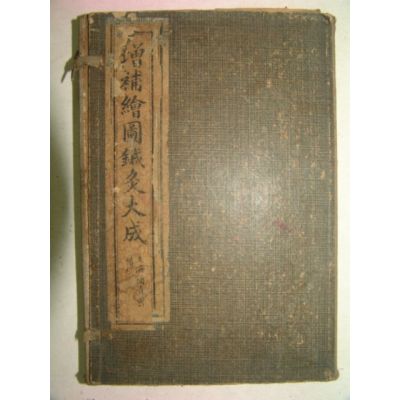 增補繪圖鍼灸大成